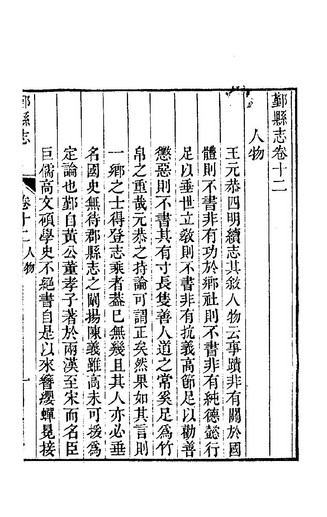 鄞縣志卷十二
人物
王元恭四明續志其敘人物云事蹟非有關於國
體則不書非有功於鄉社則不書非有純德懿行
足以垂世立敎則不書非有抗義高節足以勸善
懲惡則不書其有寸長隻善人道之常奚足爲竹
帛之重哉元恭之持論可謂正矣然果如其言則
一鄉之士得登志乘者葢已無幾且其人亦必垂
名國史無待郡縣志之闡揚陳義雖高未可援爲
定論也鄞自黃公董孝子著於兩漢至宋而名臣
巨儒高文碩學史不絕書自是以來簪纓蟬冕接
鄞縣志
卷十二 人物